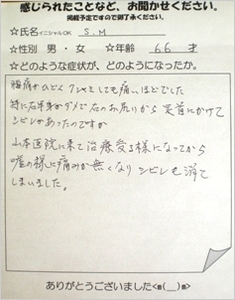 感じられたことなど、お聞かせください。
掲載予定ですので御了承ください。
☆氏名 イニシャルOK S.M
☆性別 男・女 ☆年齢 66才
☆どのような症状が、どのようになったか。
腰痛がひどく クシャミしても痛いほどでした
特に右半身がダメで右のお尻から 足首にかけて
シビレがあったのですが
山本医院に来て治療受る様になってから
嘘の様に痛みが無くなり シビレも消て
しまいました。
ありがとうございました<m(__)m>